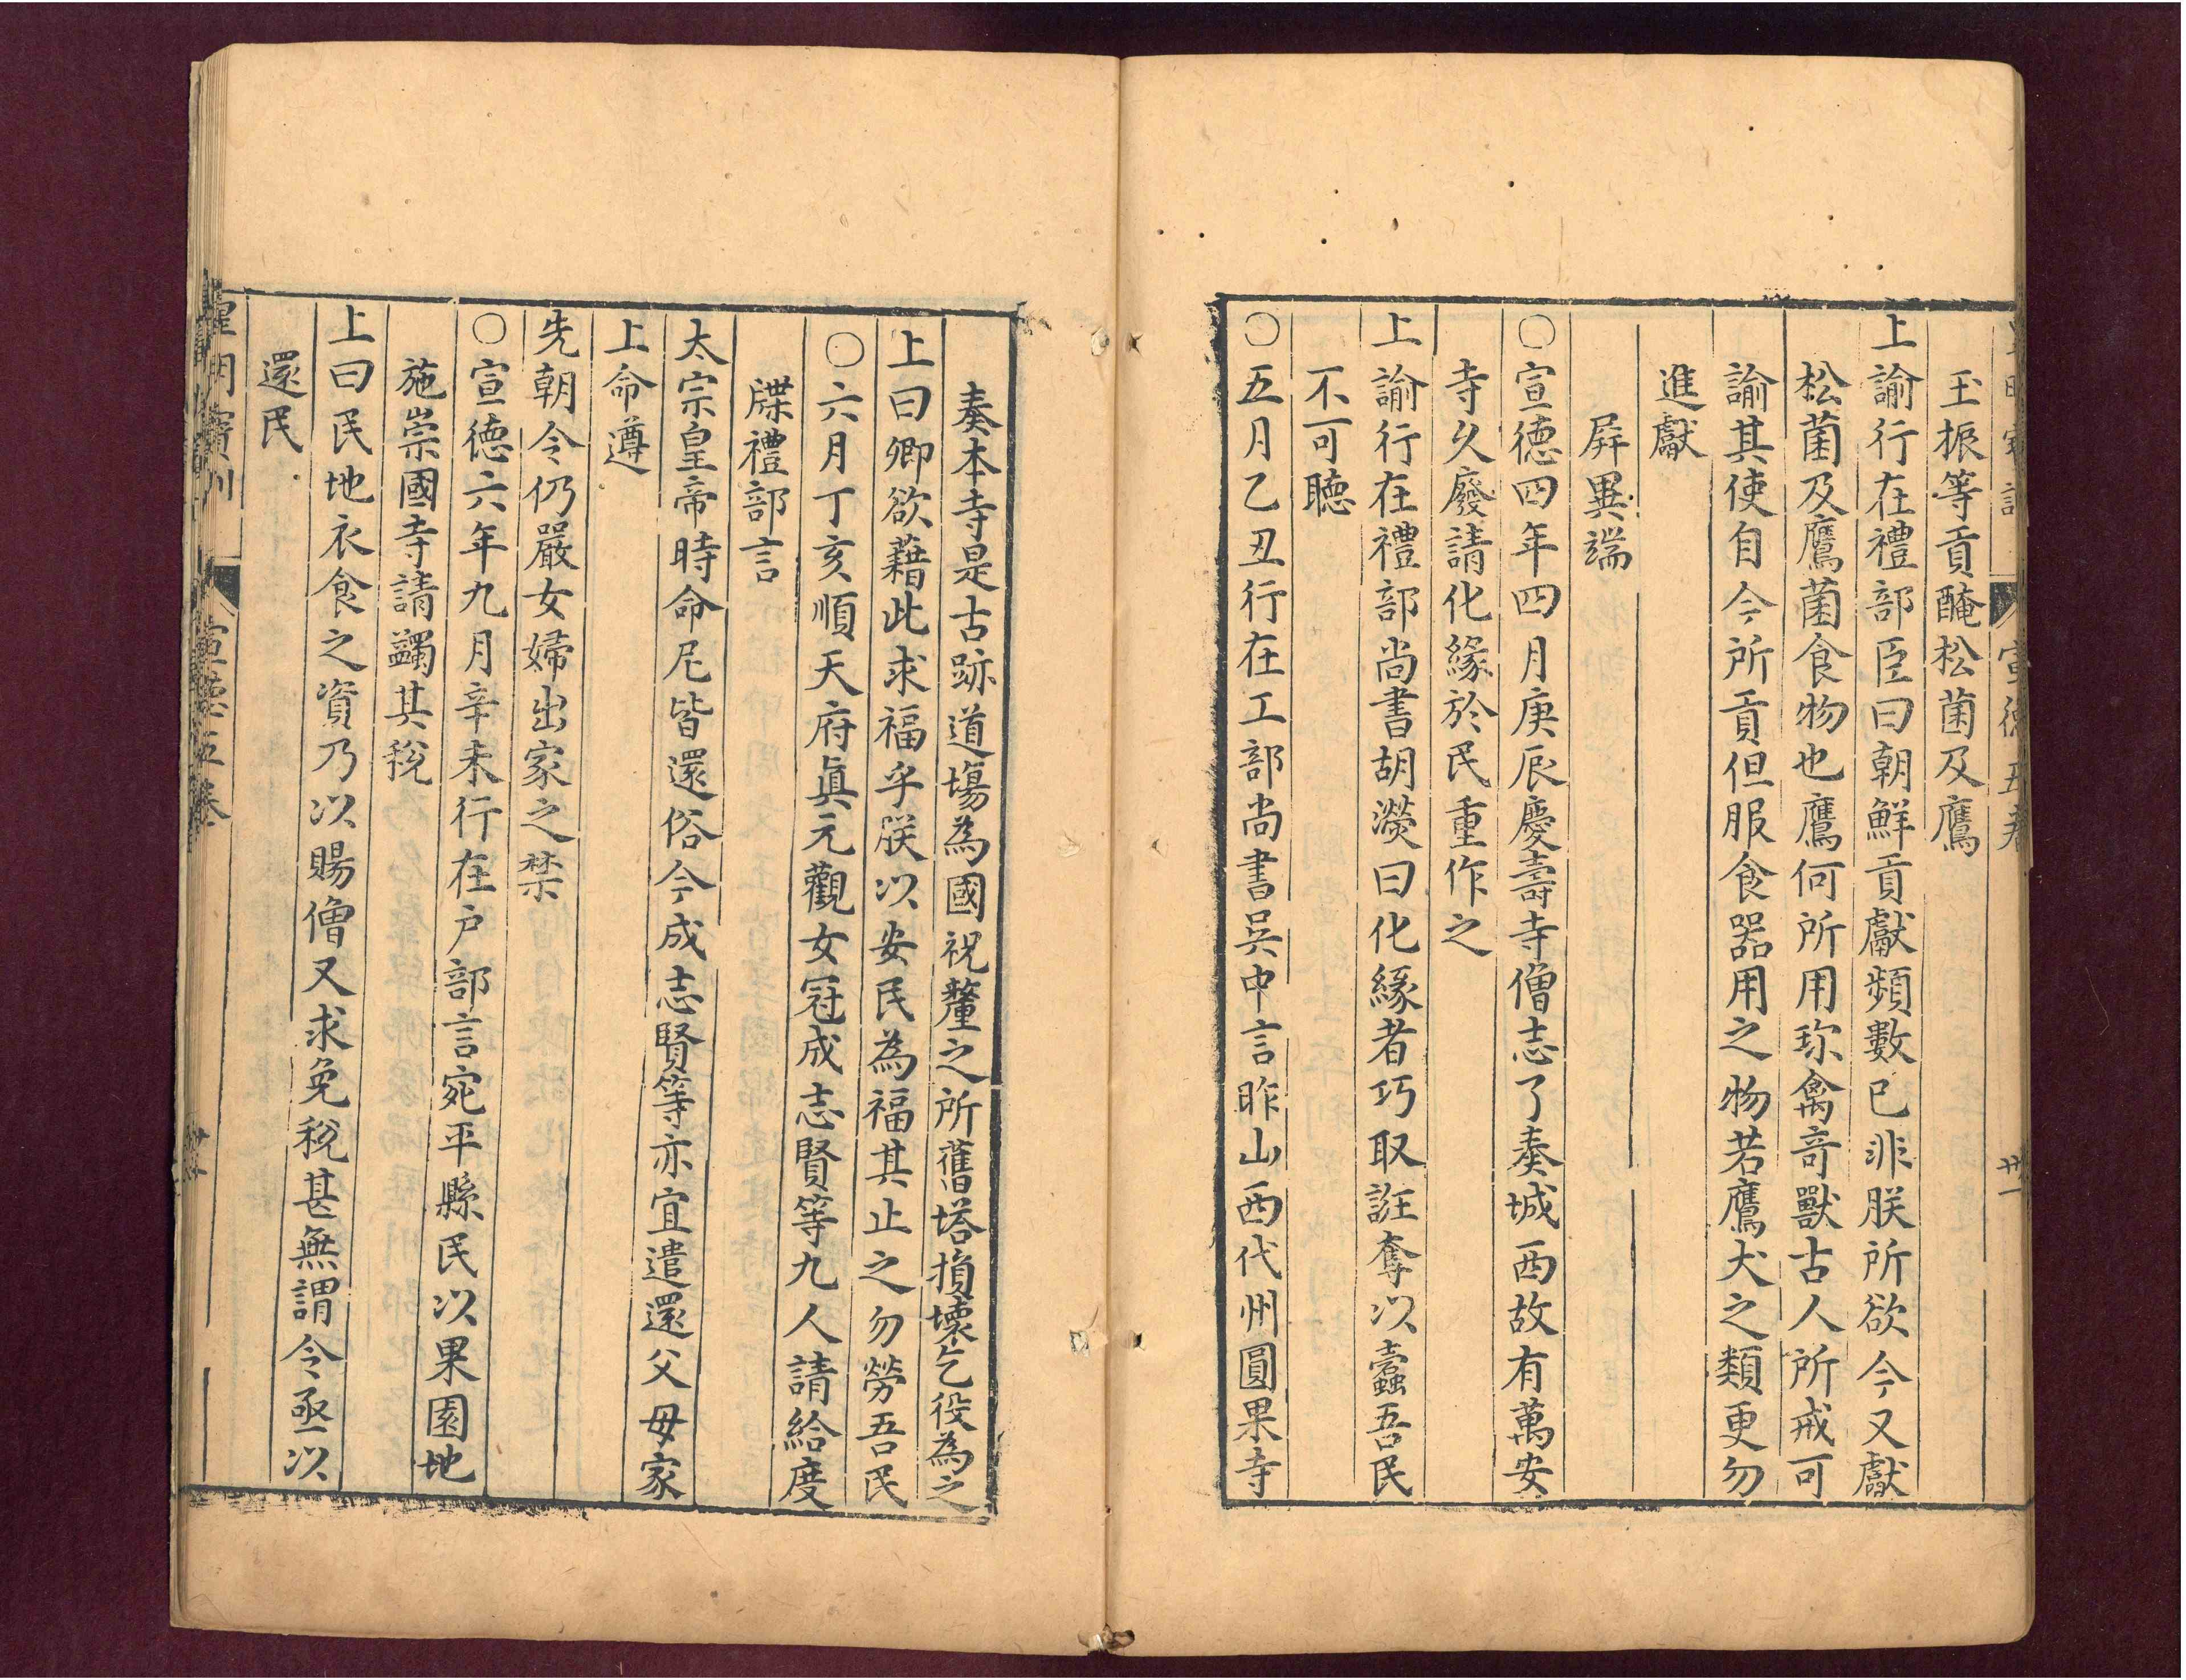 皇明寶訓 宣德五卷 廿一
玉振等貢醃松菌及鷹
上諭行在禮部臣曰朝鮮貢獻頻數已非朕所欲今又獻
松菌及鷹菌食物也鷹何所用珎禽竒獸古人所戒可
諭其使自今所貢但服食器用之物若鷹犬之類更勿
進獻
屏異端
〇宣德四年四月庚辰慶壽寺僧志了奏城西故有萬安
寺久廢請化緣於民重作之
上諭行在禮部尚書胡濙曰化緣者巧取誑奪以蠹吾民
不可聽
〇五月乙丑行在工部尚書吳中言昨山西代州圓果寺
奏本寺是古跡道塲為國祝釐之所舊塔損壞乞役為之
上曰卿欲藉此求福乎朕以安民為福其止之勿勞吾民
〇六月丁亥順天府眞元觀女冠成志賢等九人請給度
牒禮部言
太宗皇帝時命尼皆還俗今成志賢等亦宜遣還父母家
上命遵
先朝令仍嚴女婦出家之禁
〇宣德六年九月辛未行在户部言宛平縣民以果園地
施崇國寺請蠲其稅
上曰民地衣食之資乃以賜僧又求免稅甚無謂令亟以
還民
皇明寶訓 宣德五卷